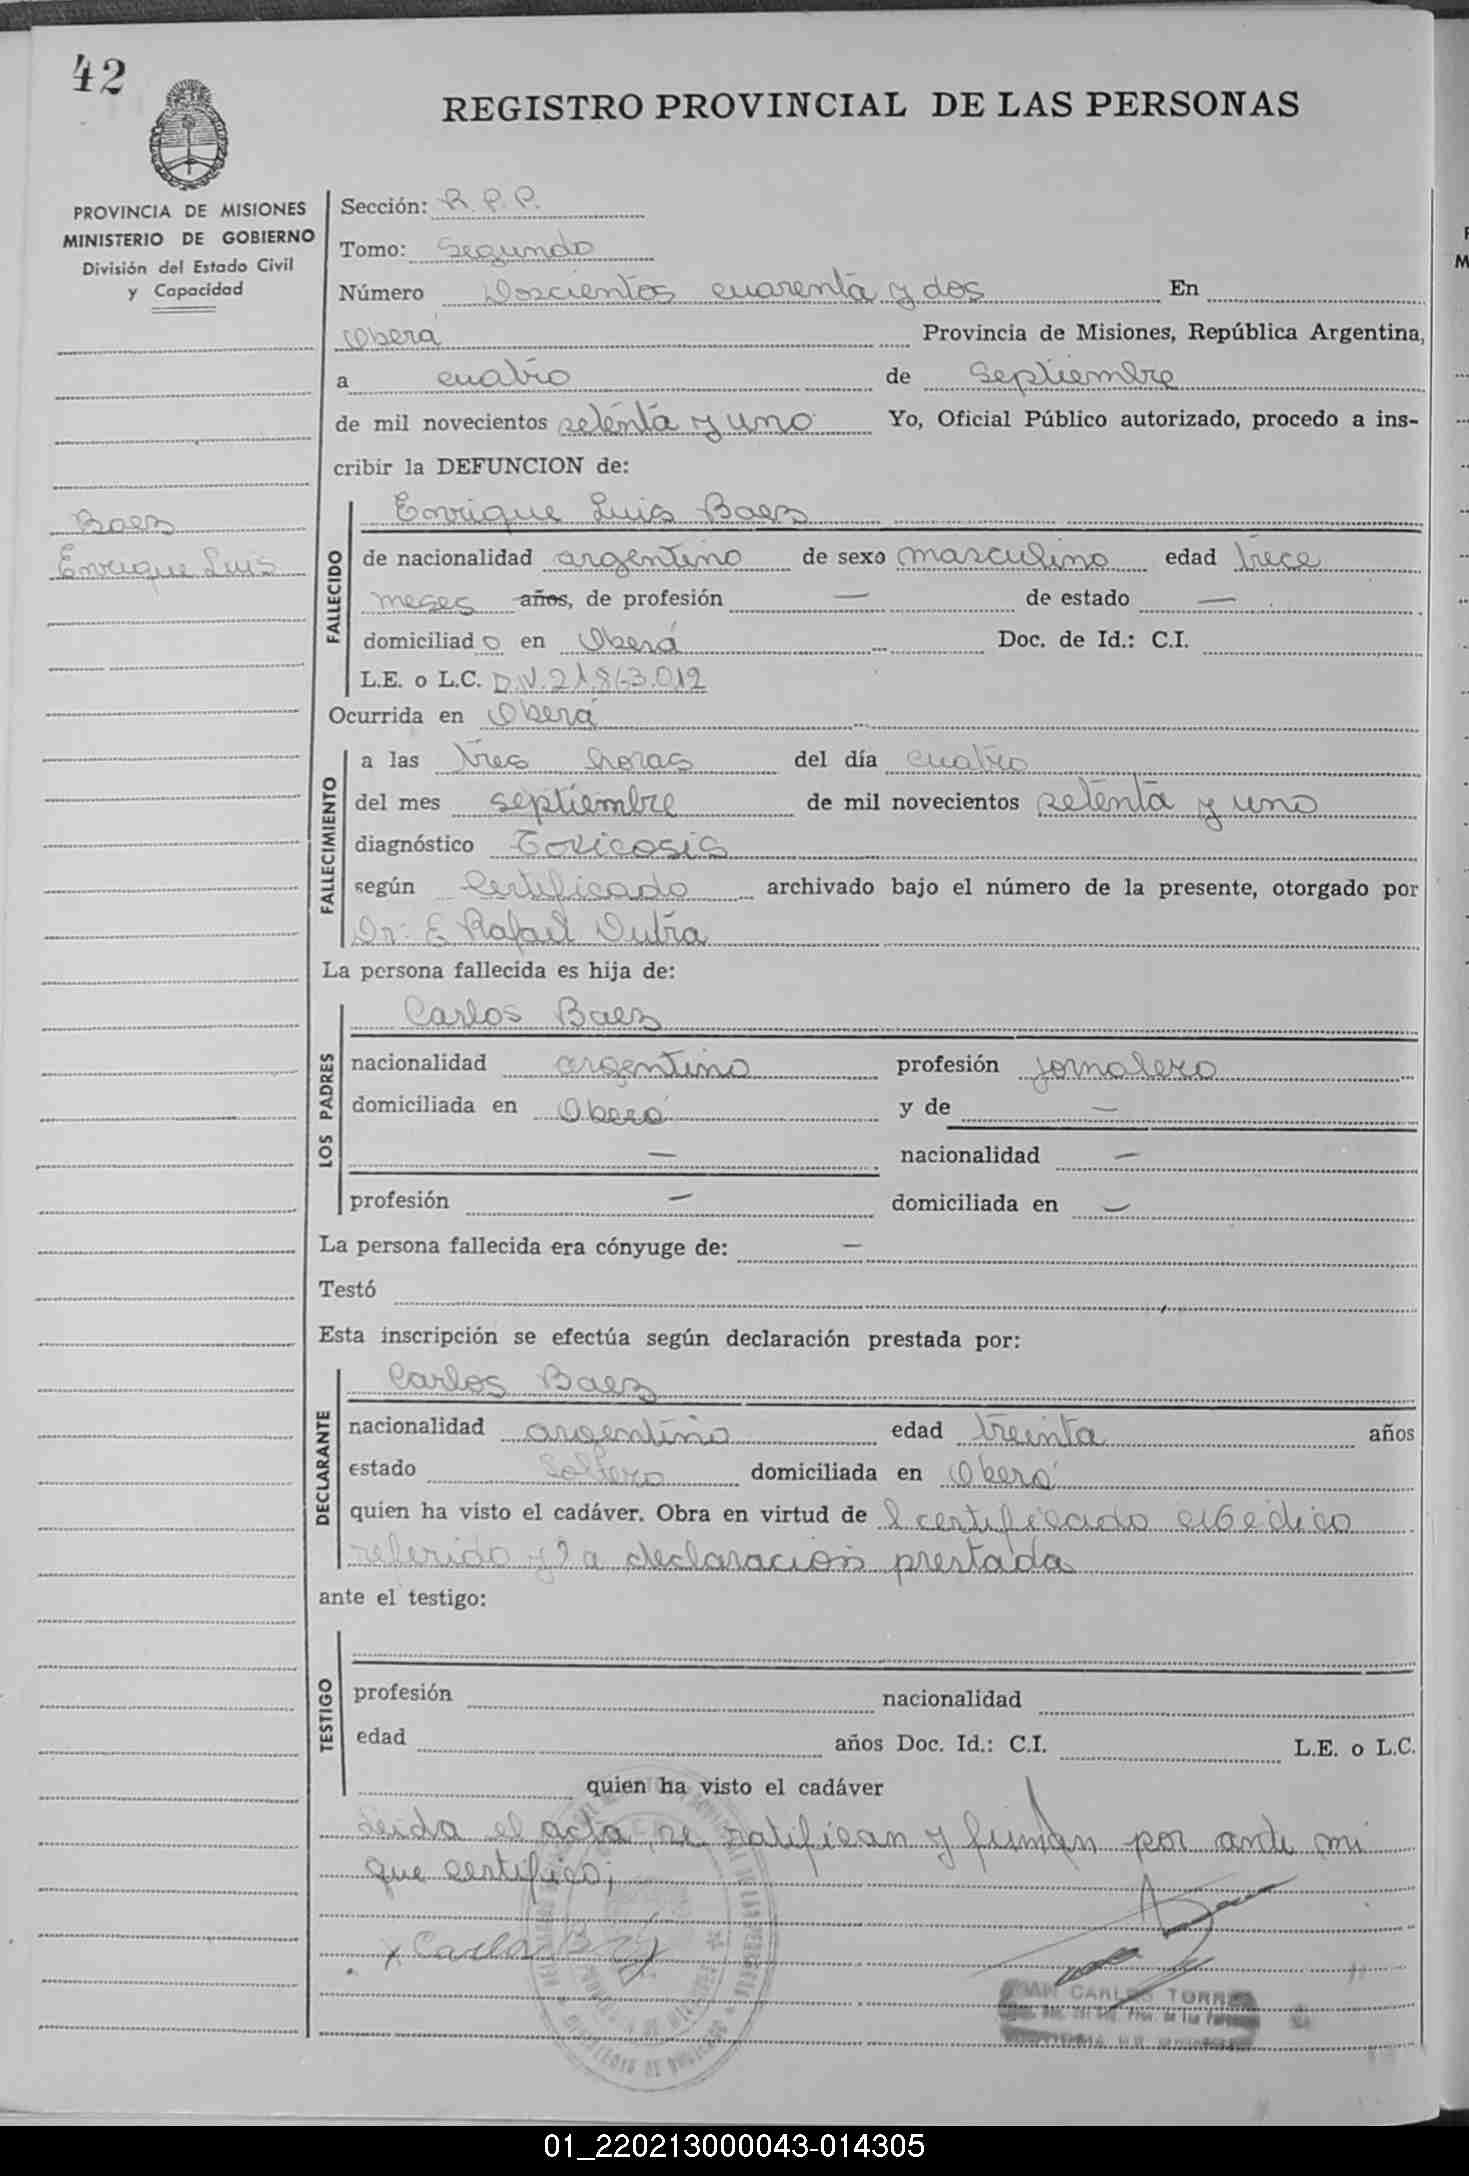 42
REGISTRO PROVINCIAL DE LAS PERSONAS
PROVINCIA DE MISIONES
MINISTERIO DE GOBIERNO
División del Estado Civil
y Capacidad
Baez
Enrique Luis
Sección: R. P. P.
Tomo: Segundo
Número Doscientos cuarenta y dos En
Oberá Provincia de Misiones, República Argentina,
a cuatro de Septiembre
de mil novecientos setenta y uno Yo, Oficial Público autorizado, procedo a ins-
cribir la DEFUNCION de:
FALLECIDO
Enrique Luis Baez
de nacionalidad argentino de sexo masculino edad trece
meses años, de profesión — de estado —
domiciliado en Oberá Doc. de Id.: C.I.
L.E. o L.C.
Ocurrida en Oberá
FALLECIMIENTO
a las tres horas del día cuatro
del mes septiembre de mil novecientos setenta y uno
diagnóstico Toxicosis
según Certificado archivado bajo el número de la presente, otorgado por
Dr: E. Rafael Dutra
La persona fallecida es hija de:
LOS PADRES
Carlos Baez
nacionalidad argentino profesión jornalero
domiciliada en Oberá y de —
— nacionalidad —
profesión — domiciliada en —
La persona fallecida era cónyuge de: —
Testó
Esta inscripción se efectúa según declaración prestada por:
DECLARANTE
Carlos Baez
nacionalidad argentino edad treinta años
estado Soltero domiciliada en Oberá
quien ha visto el cadáver. Obra en virtud de l certificado médico
referido y la declaración prestada
ante el testigo:
TESTIGO
profesión nacionalidad
edad años Doc. Id.: C.I. L.E. o L.C.
quien ha visto el cadáver
Leida el acta, se ratifican y firman por ante mi
que certifico;
x Carlos
CARLOS TORRES
01_220213000043-014305